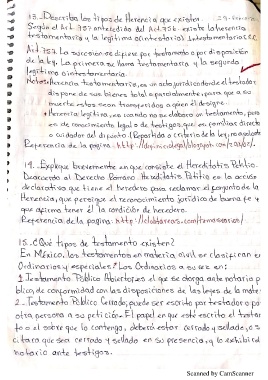 13. Describa los tipos de Herencia que existen.
Según el Art. 757 antecedido del Art. 756 existe la herencia
testamentaria y la legítima o intestamentaria.
Art. 757 La sucesión se difiere por testamento o por disposición
de la ley. La primera se llama testamentaria y la segunda
legítima o intestamentaria
Notas: Herencia testamentaria, es un acto jurídico donde el testador
dispone de sus bienes total o parcialmente para que a su
muerte estos sean transferidos a quien él designe.
Herencia legítima, es cuando no se elaboró un testamento, pero
en
Referencia de la pagina: http://
14. Explique brevemente en que consiste el Hereditatis Petitio.
De acuerdo al Derecho Romano. Hereditatis Petitio es la acción
declarativa que tiene el heredero para reclamar el conjunto de la
Herencia, que persigue el reconocimiento jurídico de buena fe y
que afirma tener él la condición de heredero.
Referencia de la pagina: http://clubtareas.com/
15. ¿Qué tipos de testamento existen?
En México, los testamentos en materia civil se clasifican en
Ordinarios y especiales: Los Ordinarios a su vez en:
1. Testamento Público Abierto: es el que se otorga ante notario p
blico, de conformidad con las disposiciones de las leyes de la mate
2.- Testamento Público Cerrado; puede ser escrito por testador o po
otra persona a su petición. El papel en que esté escrito el testar
to o el sobre que lo contenga, deberá estar cerrado y sellado, o s
citara que sea cerrado y sellado en su presencia, y lo exhibirá
notario ante testigos.
Scanned by CamScanner